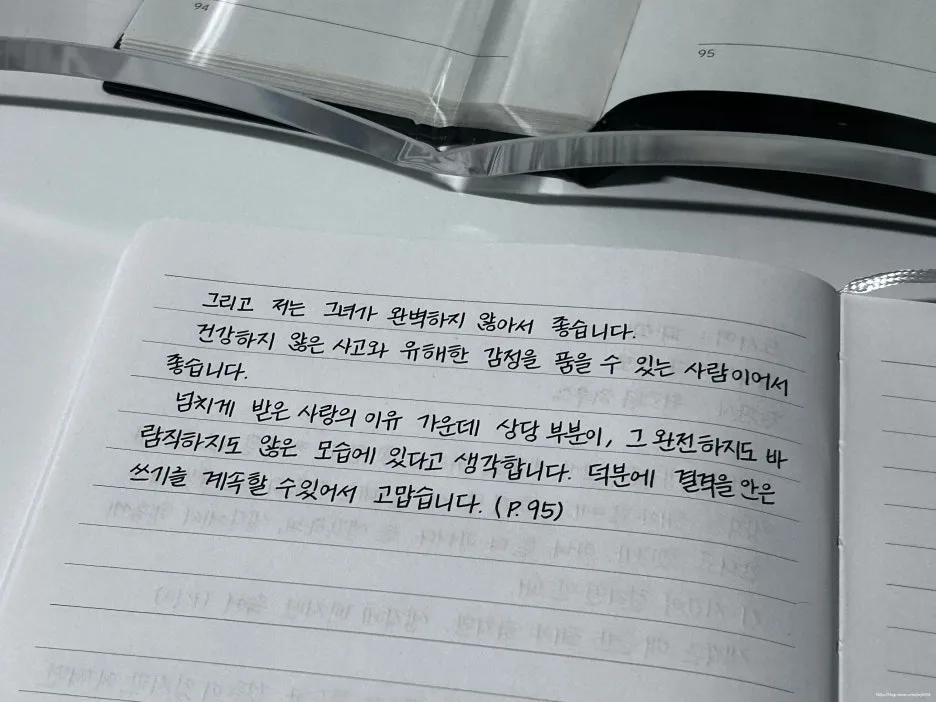 94
95
그리고 저는 그녀가 완벽하지 않아서 좋습니다.
건강하지 않은 사고와 유해한 감정을 품을 수 있는 사람이어서
좋습니다.
넘치게 받은 사랑의 이유 가운데 상당 부분이, 그 완전하지도 바
람직하지도 않은 모습에 있다고 생각합니다. 덕분에 결격을 안은
쓰기를 계속할 수 있어서 고맙습니다. (P. 95)